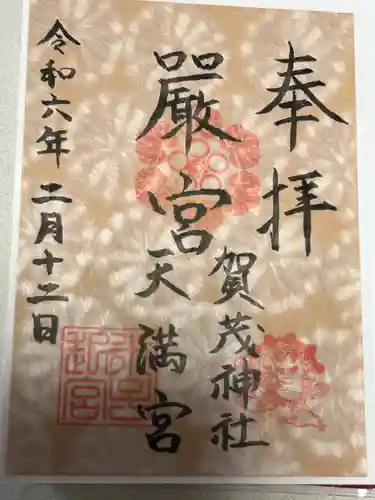 奉拝
厳宮
賀茂神社
天満宮
令和六年 二月十二日